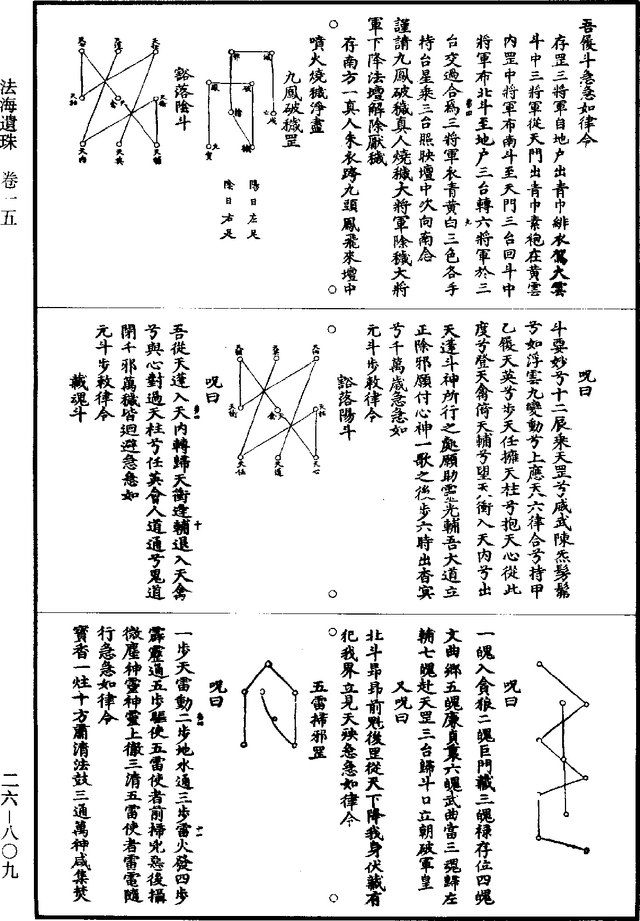 吾履斗急急如律令
存罡三將軍自地户出青巾緋衣駕大雲
斗中三將軍從天門出青巾素袍在黄雲
内罡中將軍布南斗至天門三台回斗中
將軍布北斗至地户三台轉六將軍於三
台交過合爲三將軍衣青黄白三色各手
持台星乘三台照映壇中次向南念
謹請九鳳破穢真人燒穢大將軍除穢大將
軍下降法壇解除厭穢
存南方一真人朱衣跨九頭鳳飛來壇中
噴火燒穢淨盡
九鳳破穢罡
陽日左足
陰日右足
豁落陰斗
天内
天英
天輔
呪曰
斗要妙兮十二辰乘天罡兮威武陳炁髣髴
兮如浮雲九變動兮上應天六律合兮持甲
乙履天英兮步天任擁天柱兮抱天心從此
度兮登天禽倚天輔兮望天衝入天内兮出
天蓬斗神所行之處願助靈光輔吾大道立
正除邪願付心神一歌之後步六時出杳冥
兮千萬歲急急如
元斗步敕律令
豁落陽斗
天任
天蓬
天心
呪曰
吾從天蓬入天内轉歸天衝逢輔退入天禽
兮與心對過天柱兮任英會人道通兮鬼道
閉千邪萬穢皆迴避急急如
元斗步敕律令
藏魂斗
呪曰
一魄入貪狼二魄巨門藏三魄禄存位四魄
文曲鄉五魄廉貞裏六魄武曲當三魂歸左
輔七魄赴天罡三台歸斗口立朝破軍皇
又呪曰
北斗昂昂前魁後罡從天下降我身伏藏有
犯我界立見天殃急急如律令
五雷掃邪罡
呪曰
一步天雷動二步地水通三步雷火發四步
霹靂通五步驅使五雷使者前掃兇惡後攝
微塵神靈神靈上徹三清五雷使者雷電隨
行急急如律令
寶香一炷十方肅清法鼓三通萬神咸集焚
法海遺珠 卷一五
二六—八〇九